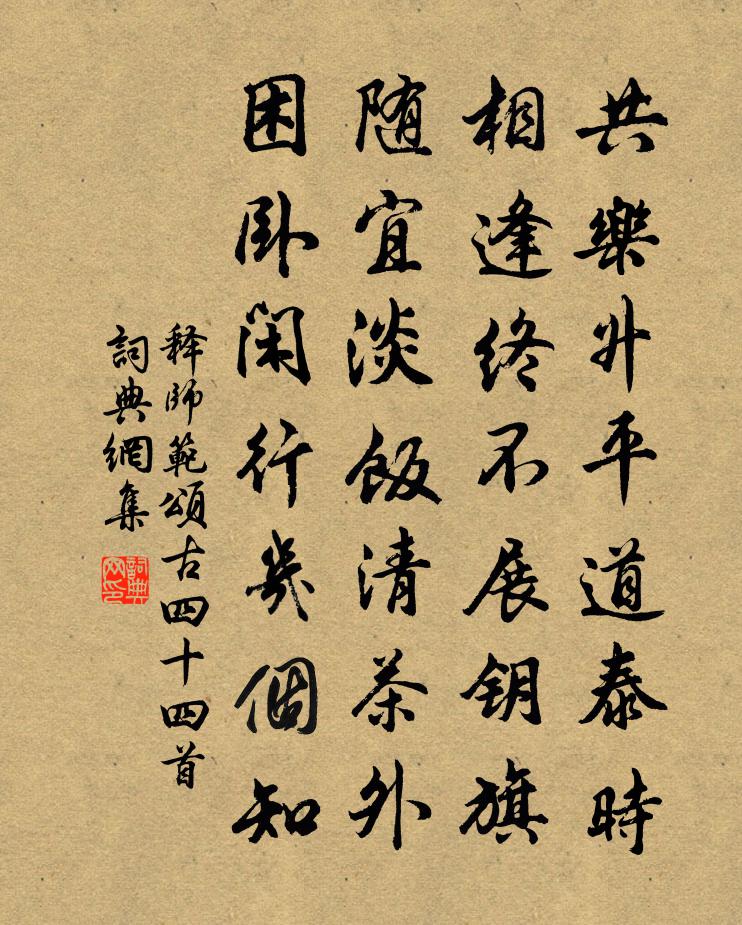 共樂升平道泰時
相逢終不展钥旗
随宜淡飯清茶外
困卧闲行幾個知
释師範頌古四十四首
詞典網集
詞典网印